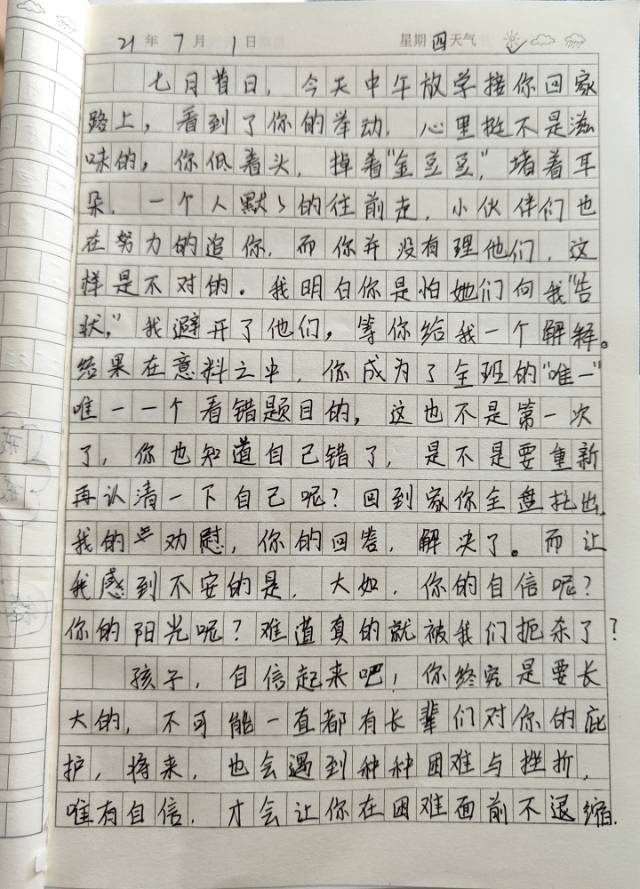 21年7月1日 星期四天气
七月首日，今天中午放学接你回家
路上，看到了你的举动，心里挺不是滋
味的，你低着头，掉着“金豆豆”，堵着耳
朵，一个人默々的往前走，小伙伴们也
在努力的追你，而你并没有理他们，这
样是不对的。我明白你是怕她们向我“告
状”，我避开了他们，等你给我一个解释。
结果在意料之中，你成为了全班的“唯一”
唯一一个看错题目的，这也不是第一次
了，你也知道自己错了，是不是要重新
再认清一下自己呢？回到家你全盘托出，
我的劝慰，你的回答，解决了。而让
我感到不安的是，大如，你的自信呢？
你的阳光呢？难道真的就被我们扼杀了？
孩子，自信起来吧！你终究是要长
大的，不可能一直都有长辈们对你的庇
护，将来，也会遇到种种困难与挫折，
唯有自信，才会让你在困难面前不退缩.